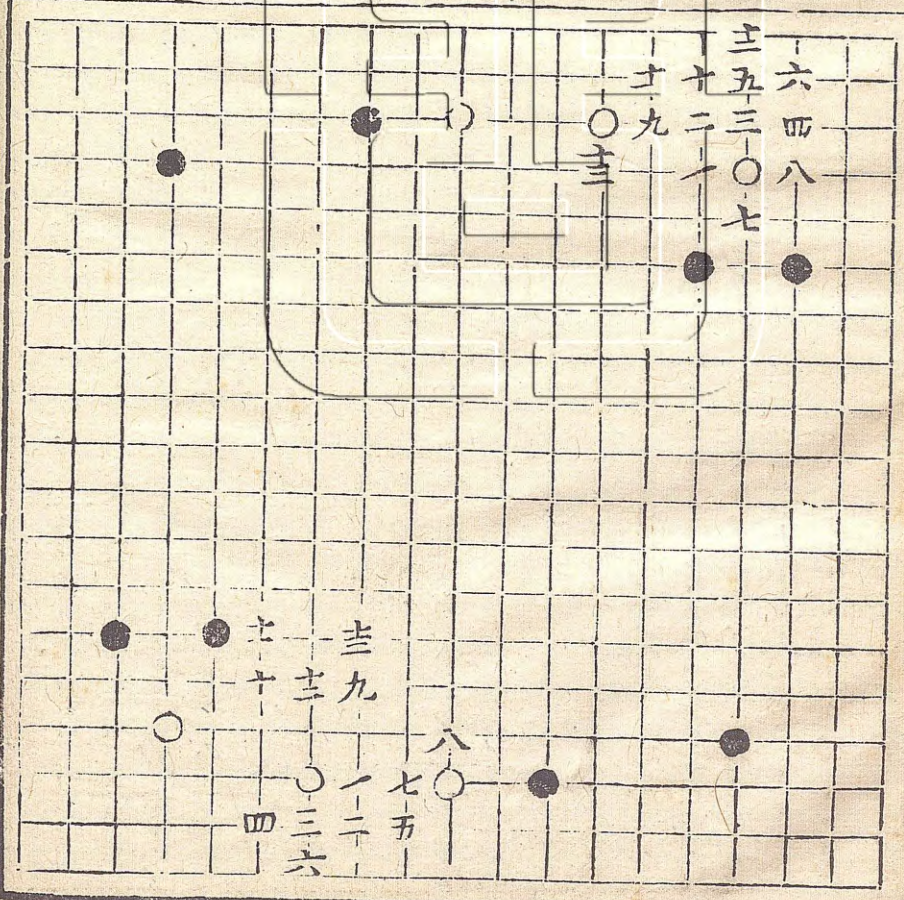 十二
十一 十 五 六
九 二 三 四
十三 一 八
七
十一 十三
十 十二 九
八
一 七
四 三 二 五
六